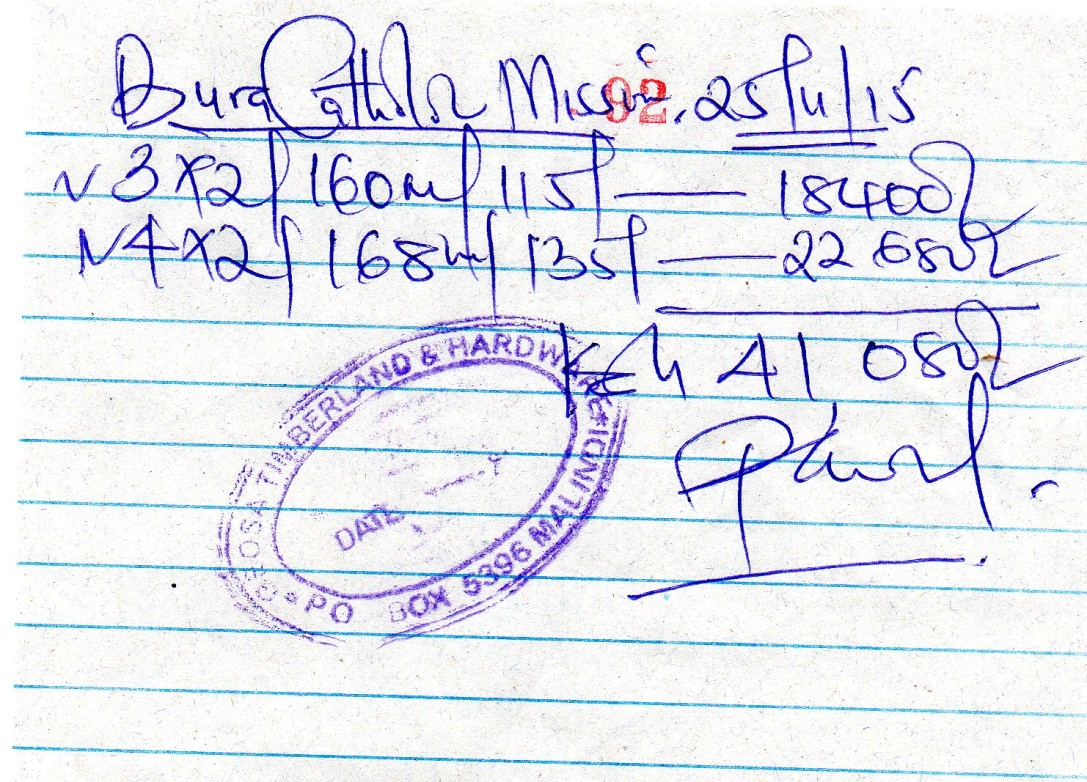 Bura Catholic Mission. 25/11/15
92
√ 3x2/ 160m/ 115/ — 18400/
√ 4x2/ 168m/ 135/ — 22 680/
KSh 41 080/
OSA TIMBERLAND & HARDWARE
DATE
PO BOX 5396 MALINDI